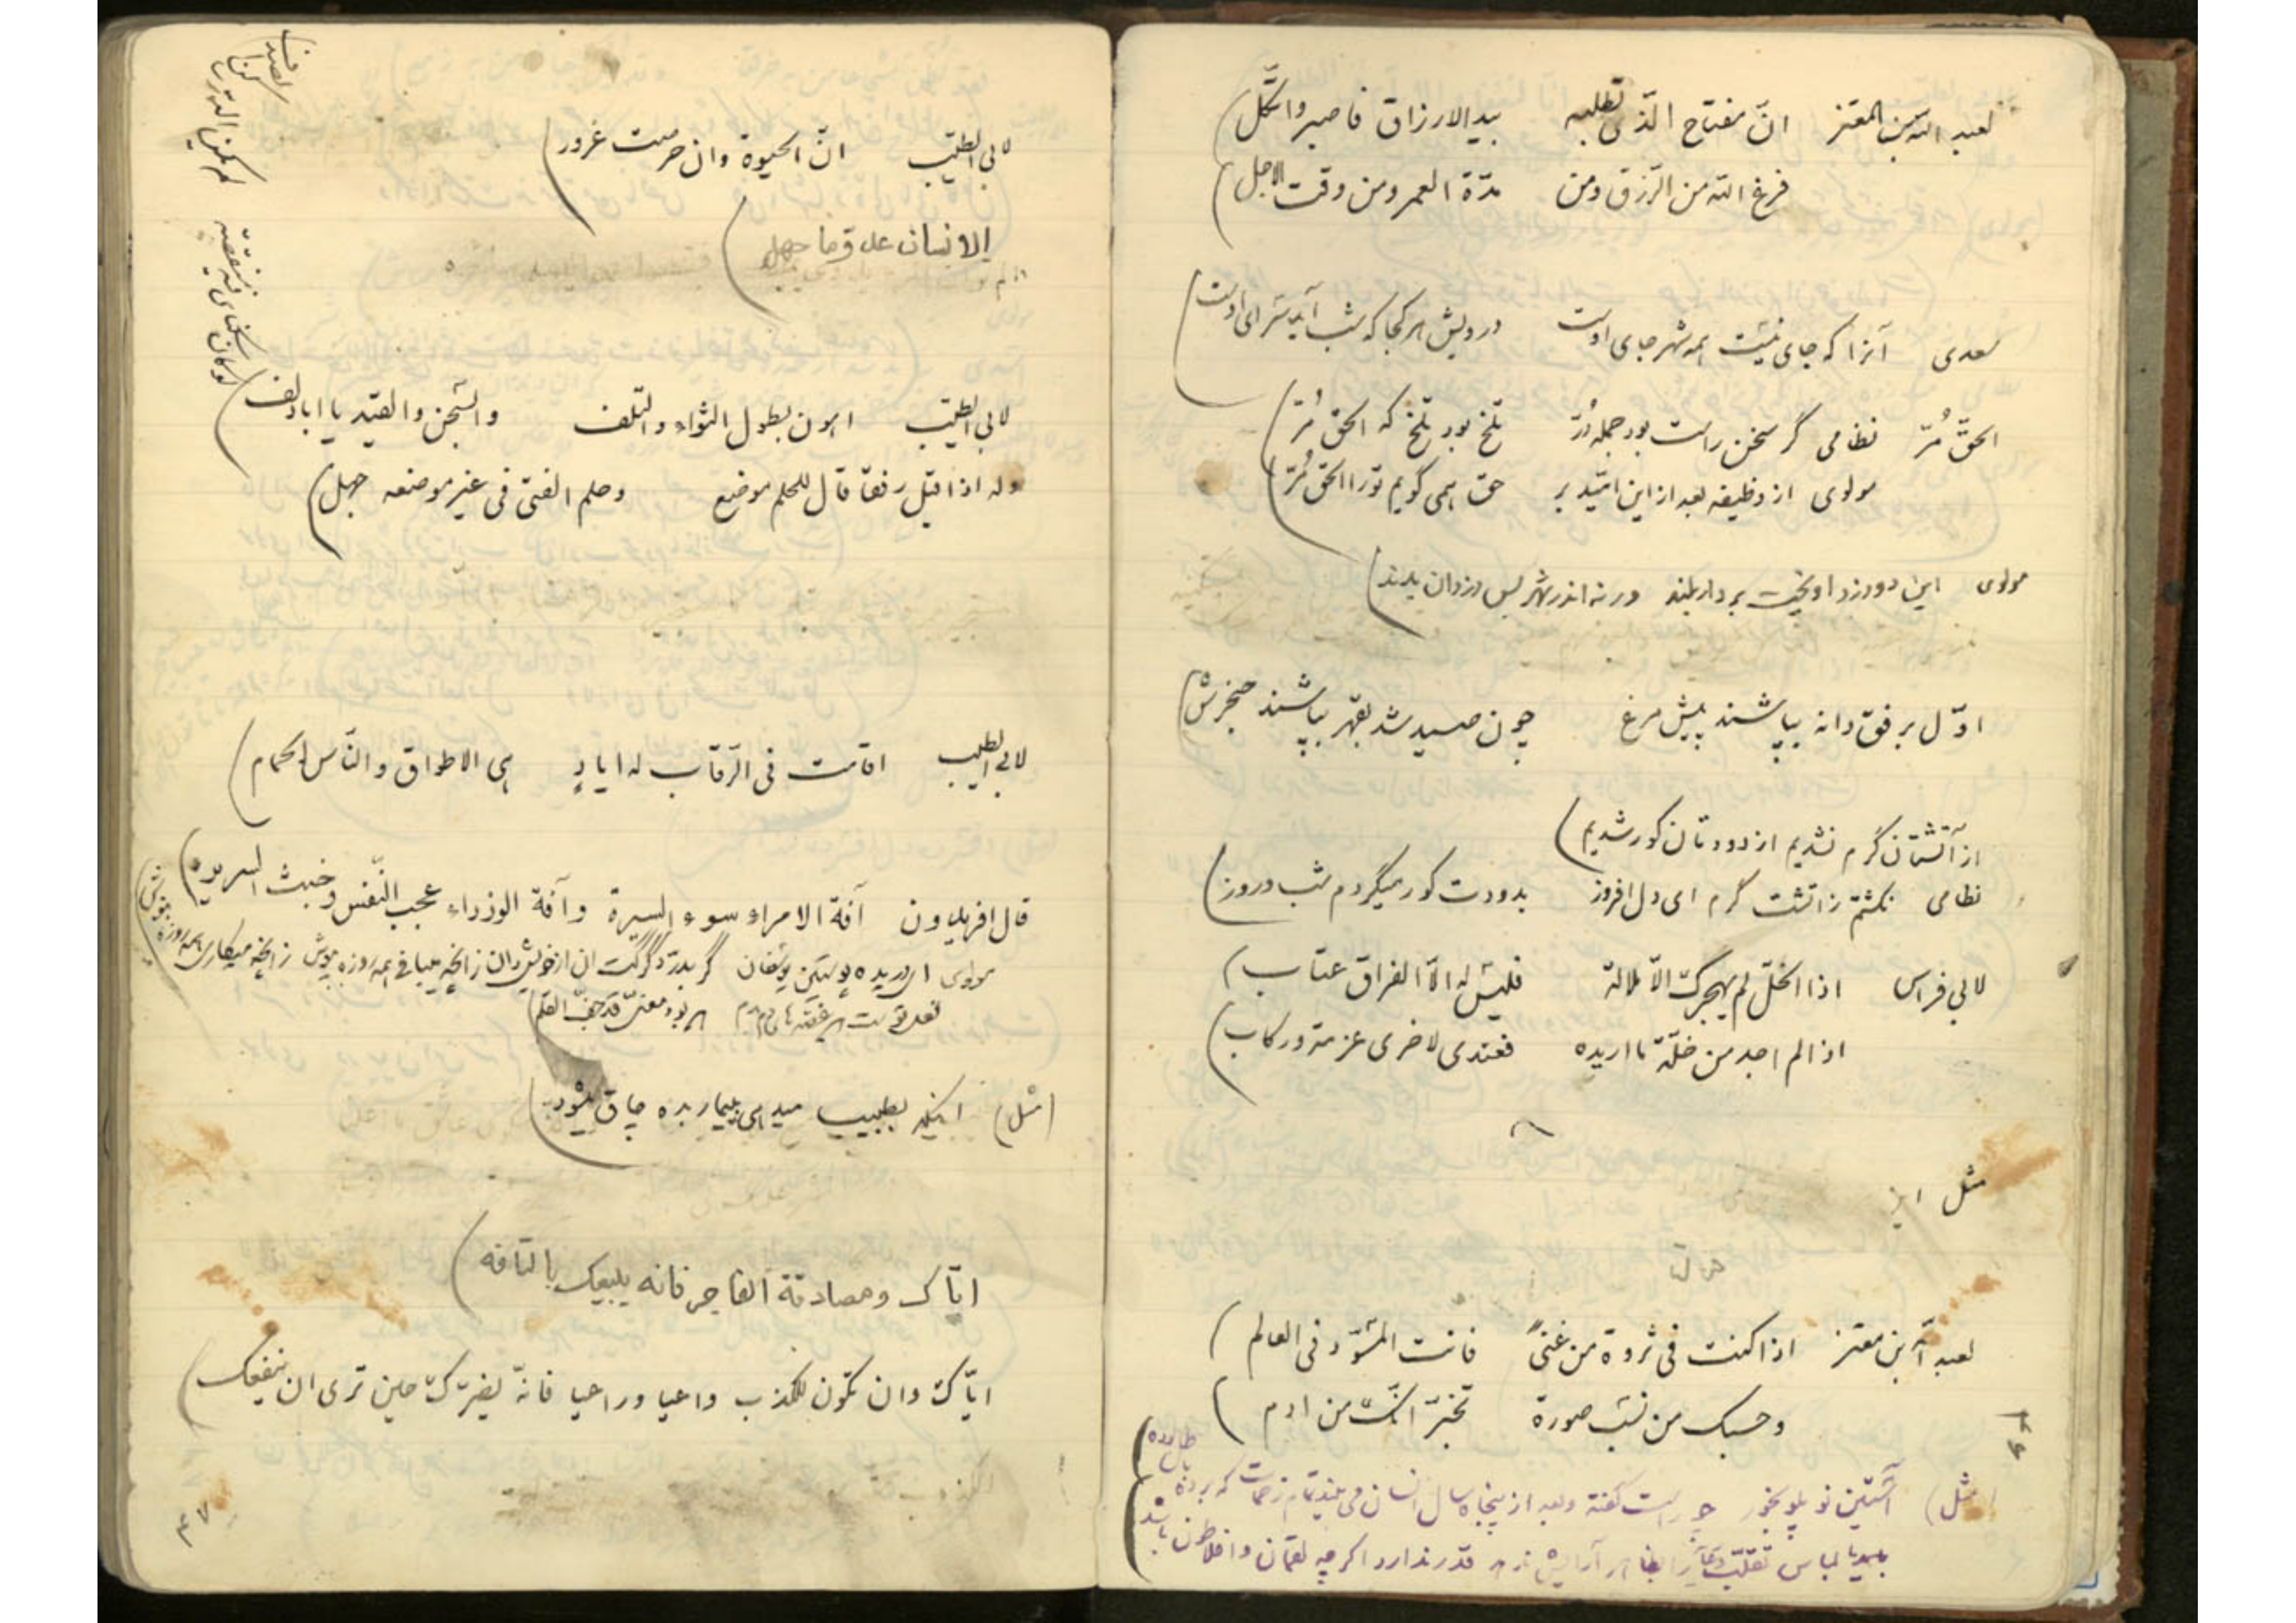 لعبد الله بن المعتز انّ مفتاح الّذی تطلبه بید الارزاق فاصبر واتّکل
فرغ الله من الرّزق ومن مدّة العمر ومن وقت الاجل
سعدی آنرا که جای نیست همه شهر جای اوست درویش هر کجا که شب آید سرای اوست
الحقّ مُرّ نظامی گر سخن راست بود جمله دُرّ تلخ بود تلخ که الحق مُرّ
مولوی از وظیفه بعد از این امّید بر حق همی گویم تو را الحق مُرّ
مولوی این دو دزد آویخت بر دار بلند ورنه اندر شهر بس دزدان بدند
اوّل برفق دانه بپاشند پیش مرغ چون صید شد بقهر بپاشند حنجرش
از آتشتان گرم نشدیم از دودتان کور شدیم
نظامی نگشتم زاتشت گرم ای دل افروز بدودت کور میگردم شب و روز
لابی فراس اذا الخلّ لم یهجرک الّا ملالة فلیس له الّا الفراق عتاب
اذا لم اجد من خلّة ما اریده فعندی لاخری عزمة ورکاب
مثل
لعبد الله بن معتز اذا کنت فی ثروة من غنیً فانت المسوّد فی العالم
وحسبک من نسب صورة تخبّر انّک من ادم
مثل) آستین نو پلو بخور چه راست گفته و بعد از پنجاه سال انسان می بیند تمام زحمات که برده
قدر ندارد اگر چه لقمان و افلاطون باشد
لابی الطیّب انّ الحیوة وان حرصت غرور
الانسان عدو ما جهل
لابی الطیّب اهون بطول الثواء والتلف والسّجن والقید یا ابا دلف
وله اذا قیل رفقا قال للحلم موضع وحلم الفتی فی غیر موضعه جهل
لو کان سکنای فیه منقصة
لم یکن الدر ساکن الصدف
لابی الطیب اقامت فی الرّقاب له ایادٍ هی الاطواق والنّاس الحمام
قال افریدون آفة الامراء سوء السیرة وآفة الوزراء عجب النّفس وخبث السریره
مولوی ای دریده پوستین یوسفان گر بدرّد گرگت آن از خویش دان زانچه میبافی همه روزه بپوش زانچه میکاری همه روزه بنوش
فعل توست این غصّه های دم بدم این بود معنیّ قد جفّ القلم
(مثل) اینکه بطبیب میدهی ببیمار بده چاق میشود
ایّاک ومصادقة الفاجر فانه یبیعک بالتافه
ایّاک وان تکون للکذب واعیا وراعیا فانّه یضرّک حین تری ان ینفعک